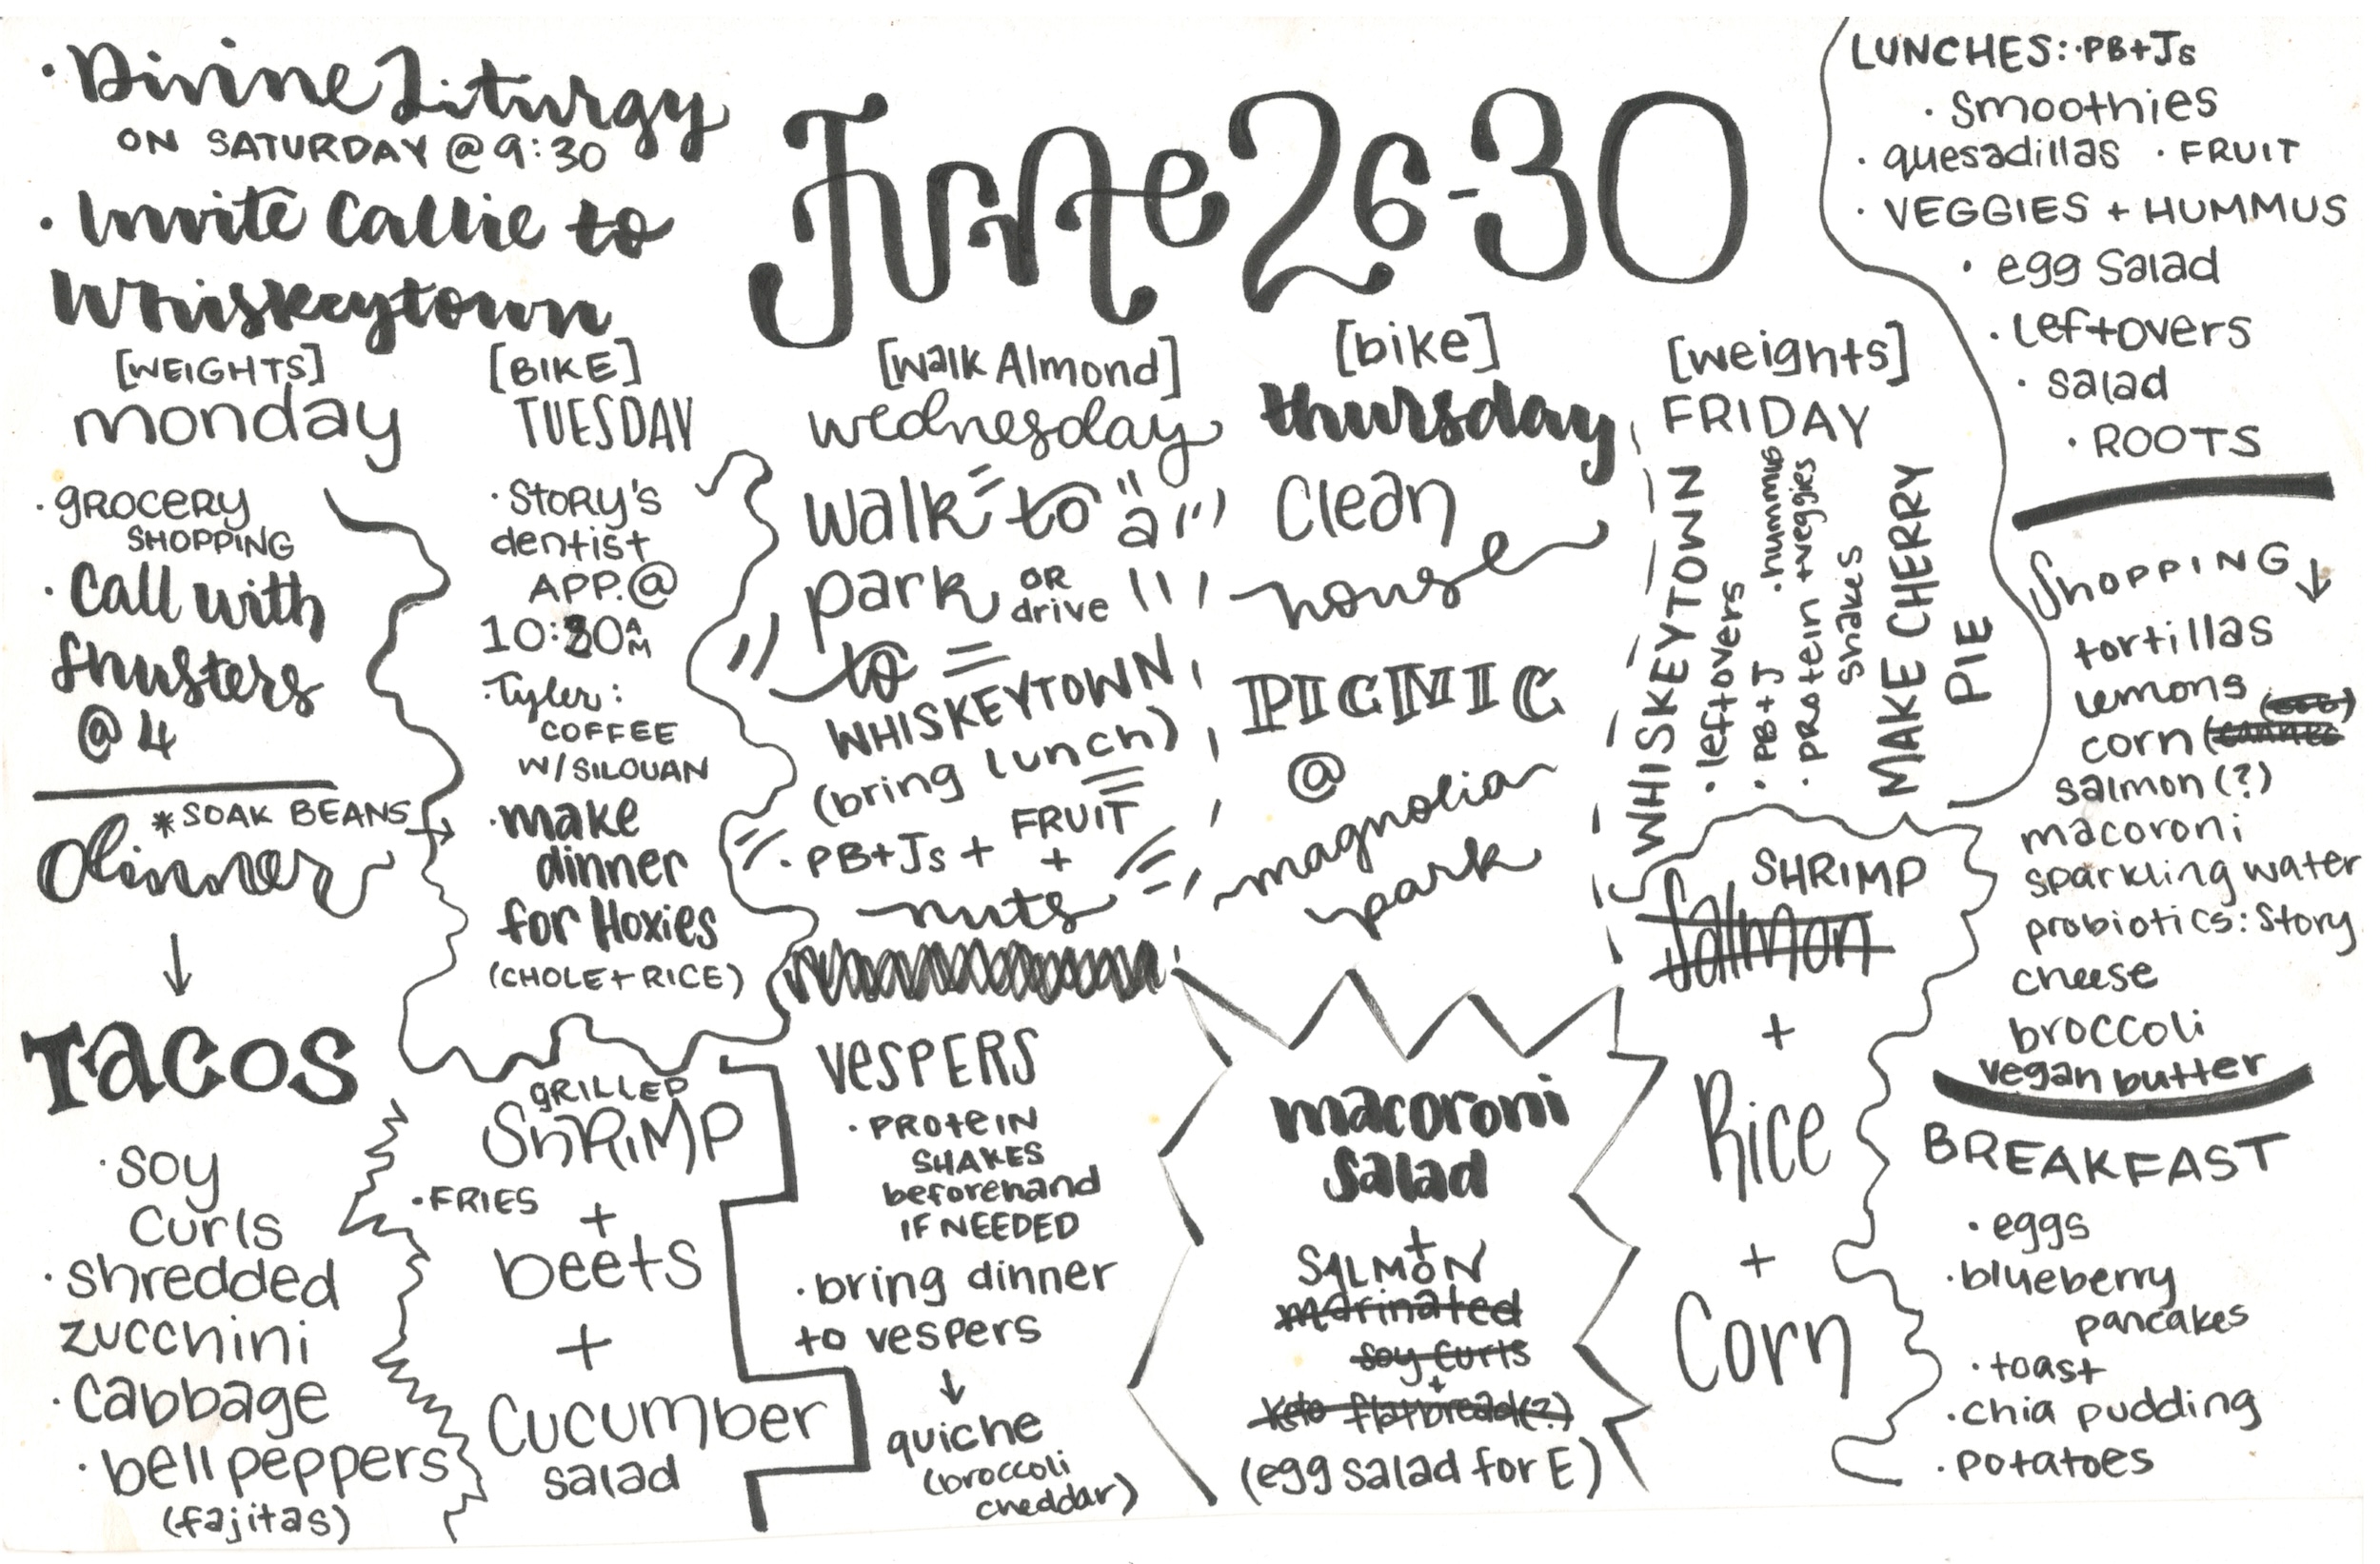 · Divine Liturgy
ON SATURDAY @ 9:30
· Invite Callie to
Whiskeytown
June 26-30
[WEIGHTS]
monday
· GROCERY
SHOPPING
· Call with
Shusters
@ 4
*SOAK BEANS →
dinner
↓
TACOS
· SOY
CURLS
· shredded
zucchini
· cabbage
· bell peppers
(fajitas)
[BIKE]
TUESDAY
· STORY'S
dentist
APP. @
10:30 AM
· Tyler:
COFFEE
W/ SILOUAN
· make
dinner
for Hoxies
(CHOLE + RICE)
GRILLED
SHRIMP
· FRIES
+
beets
+
Cucumber
salad
[Walk Almond]
wednesday
Walk to a
park OR
drive
to
WHISKEYTOWN
(bring lunch)
· PB+Js + FRUIT
+
nuts
VESPERS
· PROTEIN
SHAKES
beforehand
IF NEEDED
· bring dinner
to vespers
↓
quiche
(broccoli
cheddar)
[bike]
thursday
Clean
house
PICNIC
@
magnolia
park
macoroni
salad
+
SALMON
marinated
soy curls
+
keto flatbread(?)
(egg salad for E)
[weights]
FRIDAY
WHISKEYTOWN
· leftovers
· PB+J · hummus
· PROtein +veggies
shakes
MAKE CHERRY
PIE
SHRIMP
Salmon
+
Rice
+
Corn
LUNCHES: · PB+Js
· Smoothies
· quesadillas · FRUIT
· VEGGIES + HUMMUS
· egg salad
· leftovers
· salad
· ROOTS
SHOPPING ↓
tortillas
lemons
corn
salmon (?)
macoroni
sparkling water
probiotics: Story
cheese
broccoli
vegan butter
BREAKFAST
· eggs
· blueberry
pancakes
· toast
· chia pudding
· potatoes